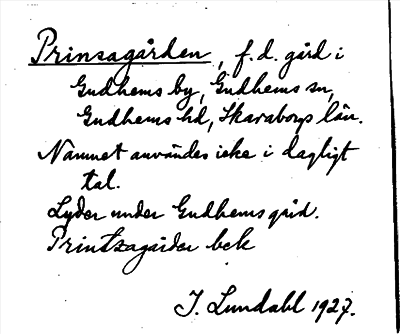 Prinsagården, f.d. gård i
Gudhems by, Gudhems sn,
Gudhems hd, Skaraborgs län.
Namnet användes icke i dagligt
tal.
Lyder under Gudhems gård.
Printzagården bek
I. Lundahl 1927.